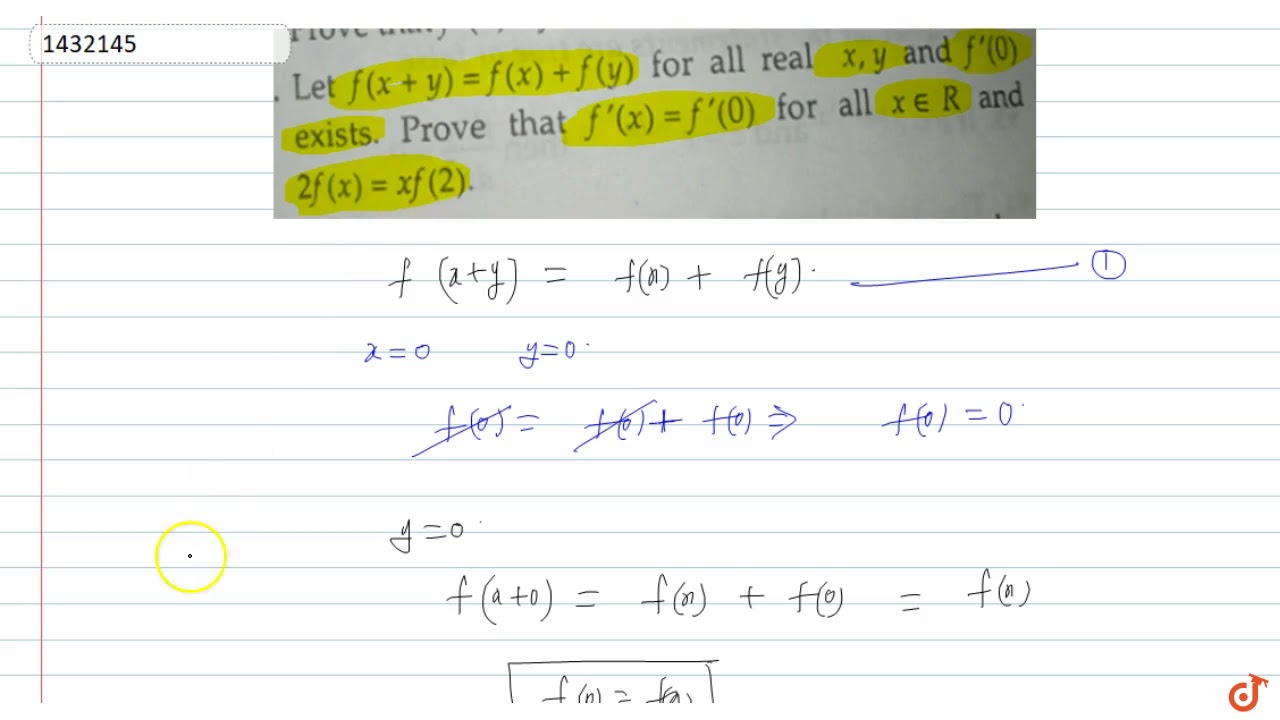 1432145
Prove that y
. Let f(x + y) = f(x) + f(y) for all real x, y and f'(0)
exists. Prove that f'(x) = f'(0) for all x ∈ R and
2f(x) = xf(2).
f (x+y) = f(x) + f(y). ①
x=0 y=0.
f(0) = f(0) + f(0) ⇒ f(0) = 0.
y=0.
f(x+0) = f(x) + f(0) = f(x)
f(x) = f(x)